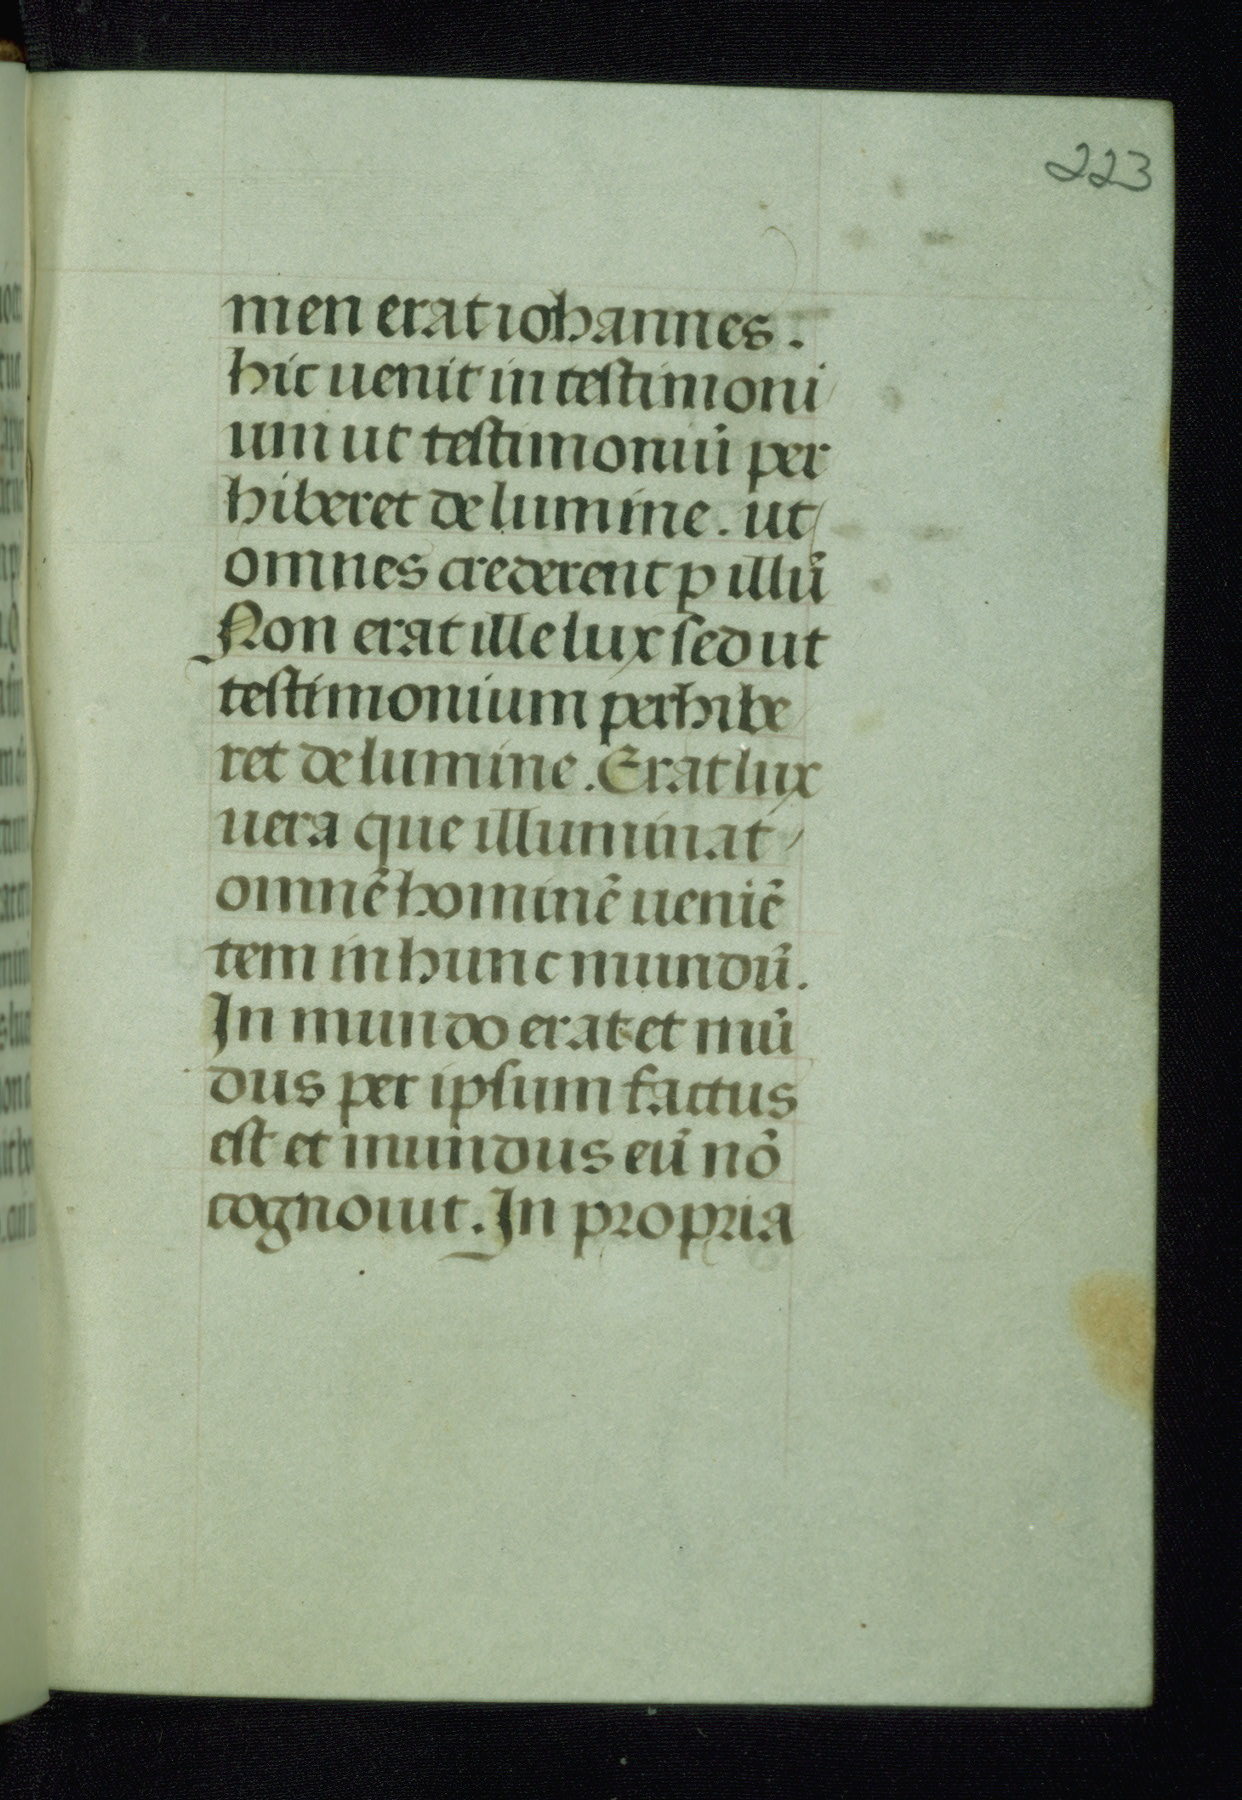 223
men erat iohannes.
hic uenit in testimoni
um ut testimoniū per
hiberet de lumine. ut
omnes crederent p illū
Non erat ille lux sed ut
testimonium perhibe
ret de lumine. Erat lux
uera que illuminat
omnē hominē ueniē
tem in hunc mundū.
In mundo erat et mū
dus per ipsum factus
est et mundus eū nō
cognouit. In propria